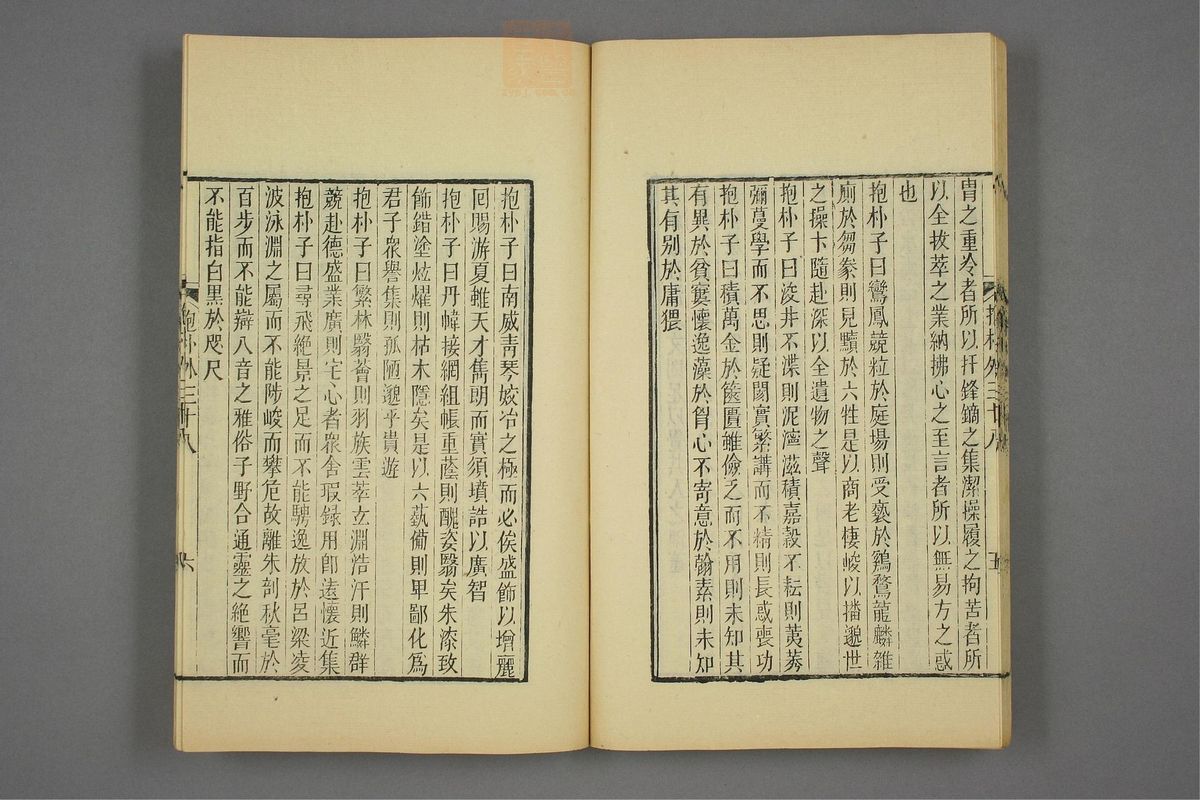 冑之重冷者所以扞鋒鏑之集潔操履之拘苦者所
以全拔萃之業納拂心之至言者所以無易方之惑
也
抱朴子曰鸞鳳競粒於庭場則受褻於鷄鶩龍麟雜
廁於芻豢則見黷於六牲是以商老棲峻以播邈世
之操卞隨赴深以全遺物之聲
抱朴子曰浚井不渫則泥濘滋積嘉穀不耘則荑莠
彌蔓學而不思則疑閡實繁講而不精則長惑喪功
抱朴子曰積萬金於篋匱雖儉乏而不用則未知其
有異於貧窶懷逸藻於胷心不寄意於翰素則未知
其有别於庸猥
抱朴外三十八
五
抱朴子曰南威靑琴姣冶之極而必俟盛飾以增麗
囘賜游夏雖天才雋朗而實須墳誥以廣智
抱朴子曰丹幃接網組帳重蔭則醜姿翳矣朱漆致
飾錯塗炫燿則枯木隱矣是以六藝備則卑鄙化爲
君子衆譽集則孤陋邈乎貴遊
抱朴子曰繁林翳薈則羽族雲萃玄淵浩汗則鱗群
競赴德盛業廣則宅心者衆舍瑕録用卽逺懷近集
抱朴子曰尋飛絶景之足而不能騁逸放於呂梁凌
波泳淵之屬而不能陟峻而攀危故離朱剖秋毫於
百步而不能辯八音之雅俗子野合通靈之絶響而
不能指白黑於咫尺
抱朴外三十八
六